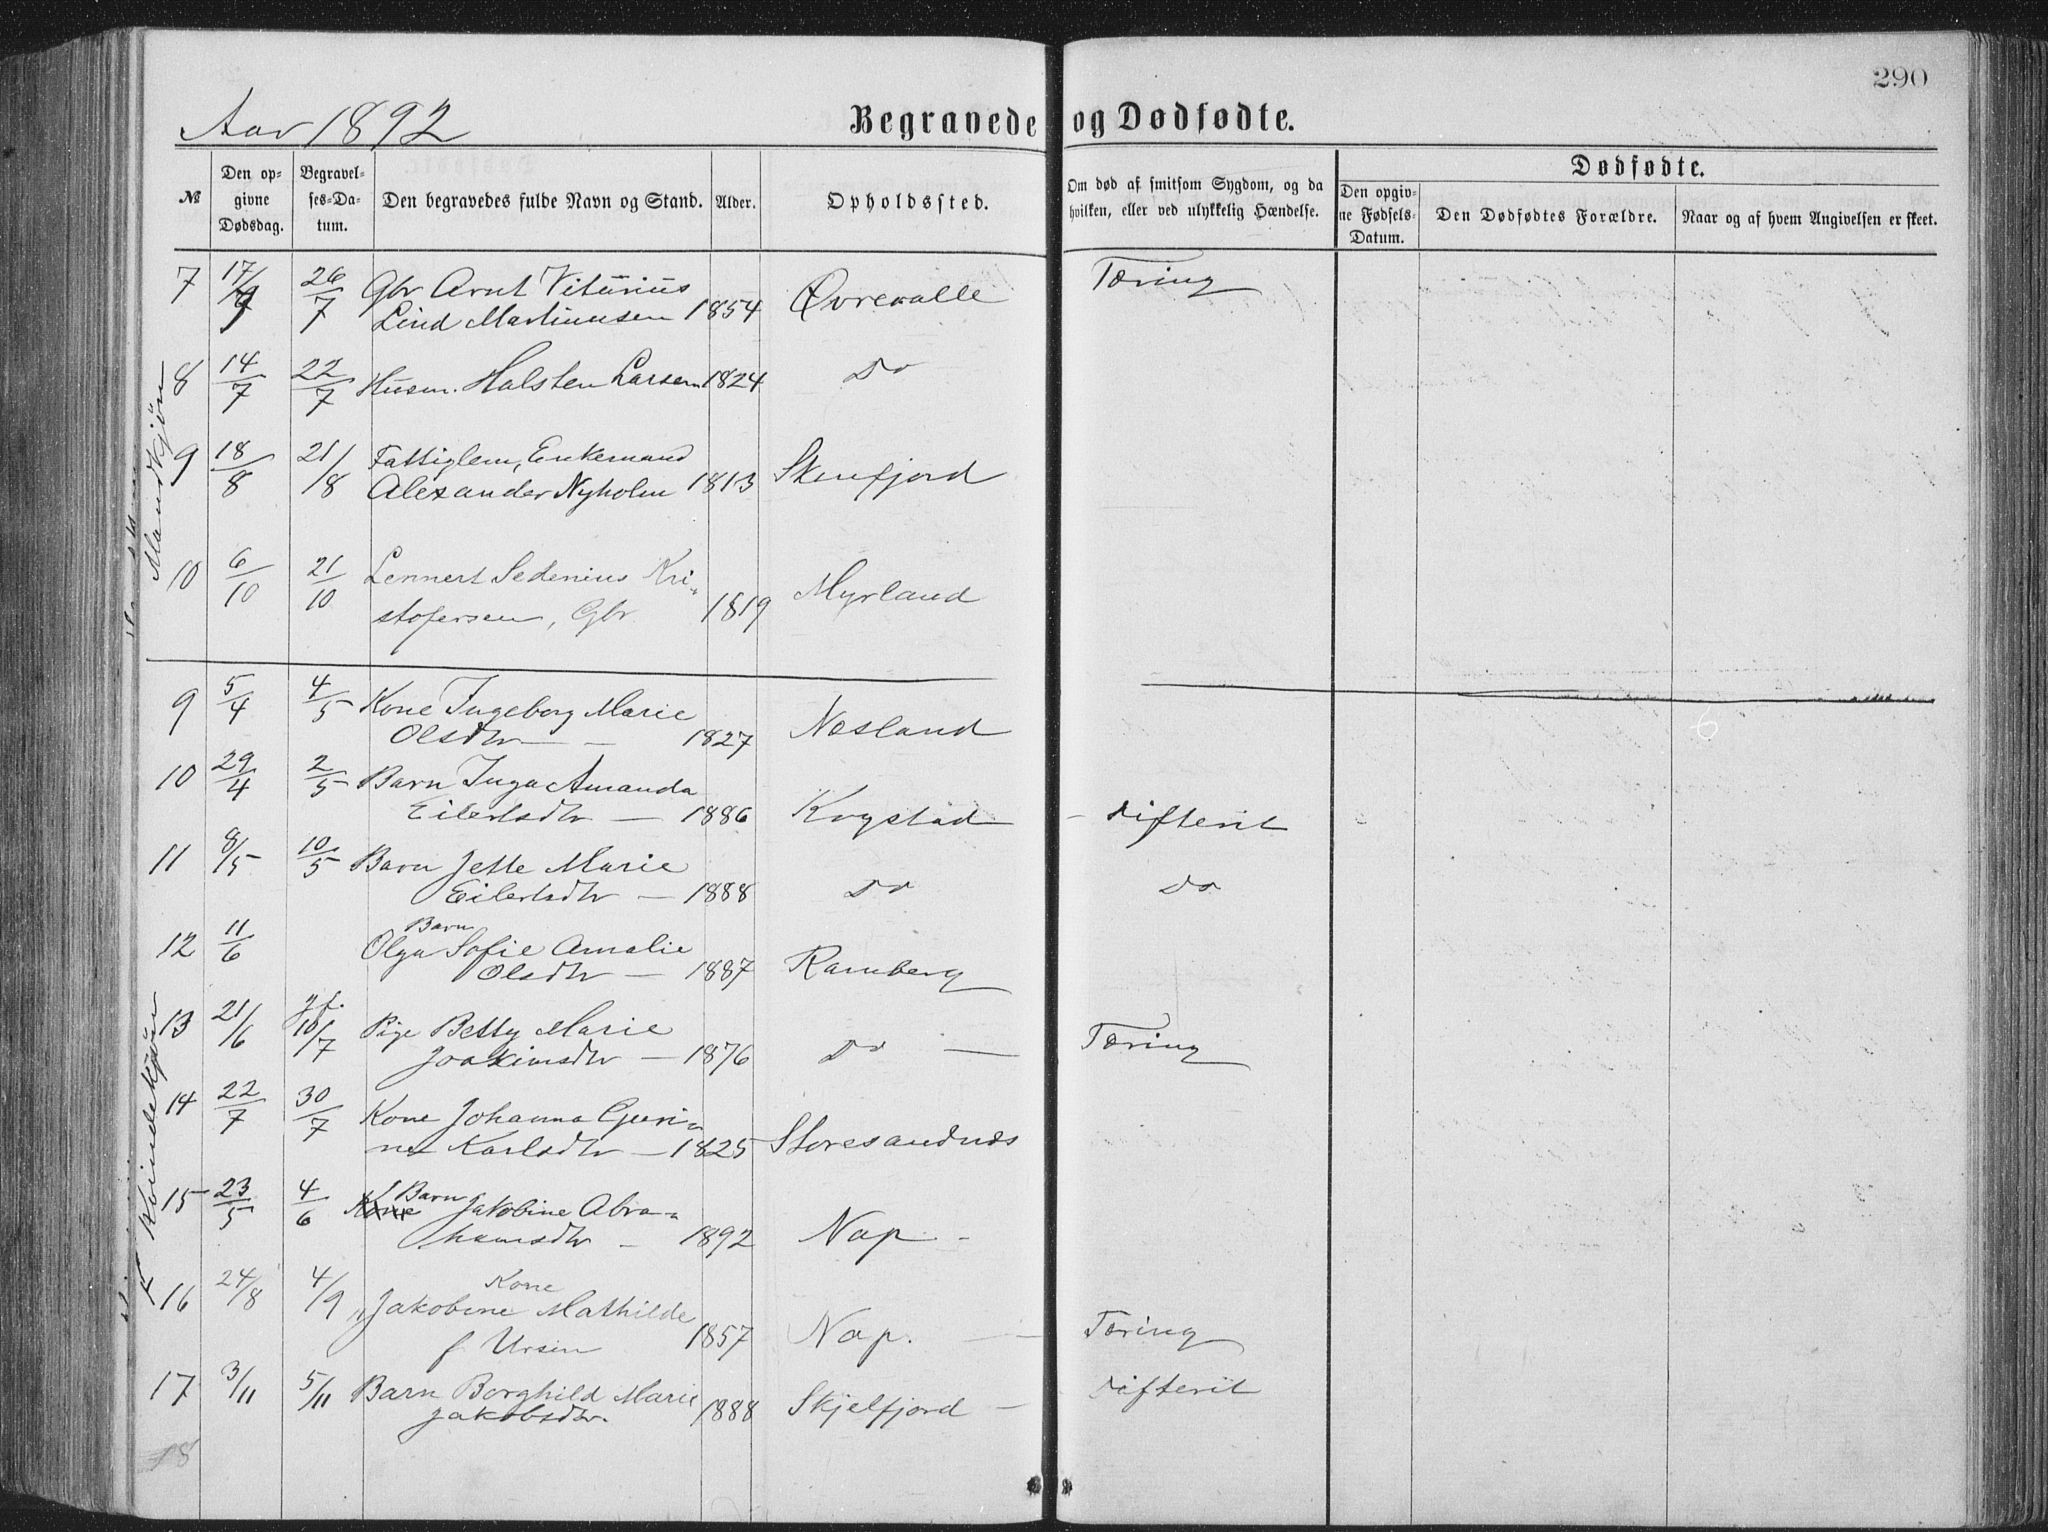 290
Aar 1892
Begravede og Dødfødte.
№
Den op-
givne
Dødsdag.
Begravel-
ses-Da-
tum.
Den begravedes fulde Navn og Stand.
Alder.
Opholdssted.
Om død af smitsom Sygdom, og da
hvilken, eller ved ulykkelig Hændelse.
Dødfødte.
Den opgiv-
ne Fødsels-
Datum.
Den Dødfødtes Forældre.
Naar og af hvem Angivelsen er skeet.
Mandkjön
7 17/7 26/7 Gbr Arnt Viturius
Lind Martinusen 1854 Øvrevalle Tæring
8 14/7 22/7 Husm. Halsten Larsen 1824 Do
9 18/8 21/8 Fattiglem, Enkemand
Alexander Nyholm 1813 Skenfjord
10 6/10 21/10 Lennert Sedenius Kri-
stofersen, Gbr 1819 Myrland
Kvindekjön
9 5/4 4/5 Kone Ingeborg Marie
Olsdtr — 1827 Næsland
10 29/4 2/5 Barn Inga Amanda
Eilertsdtr — 1886 Krystad - Difterit
11 8/5 10/5 Barn Jette Marie
Eilertsdtr — 1888 Do Do
12 11/6 Barn
Olga Sofie Amalie
Olsdtr — 1887 Ramberg
13 21/6 10/7 Pige Betty Marie
Joakimsdtr — 1876 Do — Tæring
14 22/7 30/7 Kone Johanna Guri-
ne Karlsdtr — 1825 Storesandnæs
15 23/5 4/6 Kone Barn Jakobine Abra-
hamsdtr — 1892 Nap -
16 24/8 4/9 Kone
Jakobine Mathilde
f Ursin 1857 Nap. — Tæring
17 3/11 5/11 Barn Borghild Marie
Jakobsdtr. 1888 Skjelfjord — Difterit
18
6